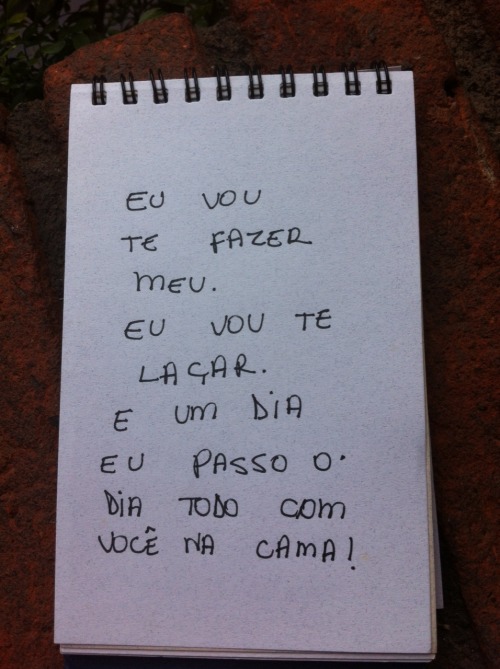 EU VOU
TE FAZER
MEU.
EU VOU TE
LAÇAR.
E UM DIA
EU PASSO O
DIA TODO COM
VOCÊ NA CAMA!